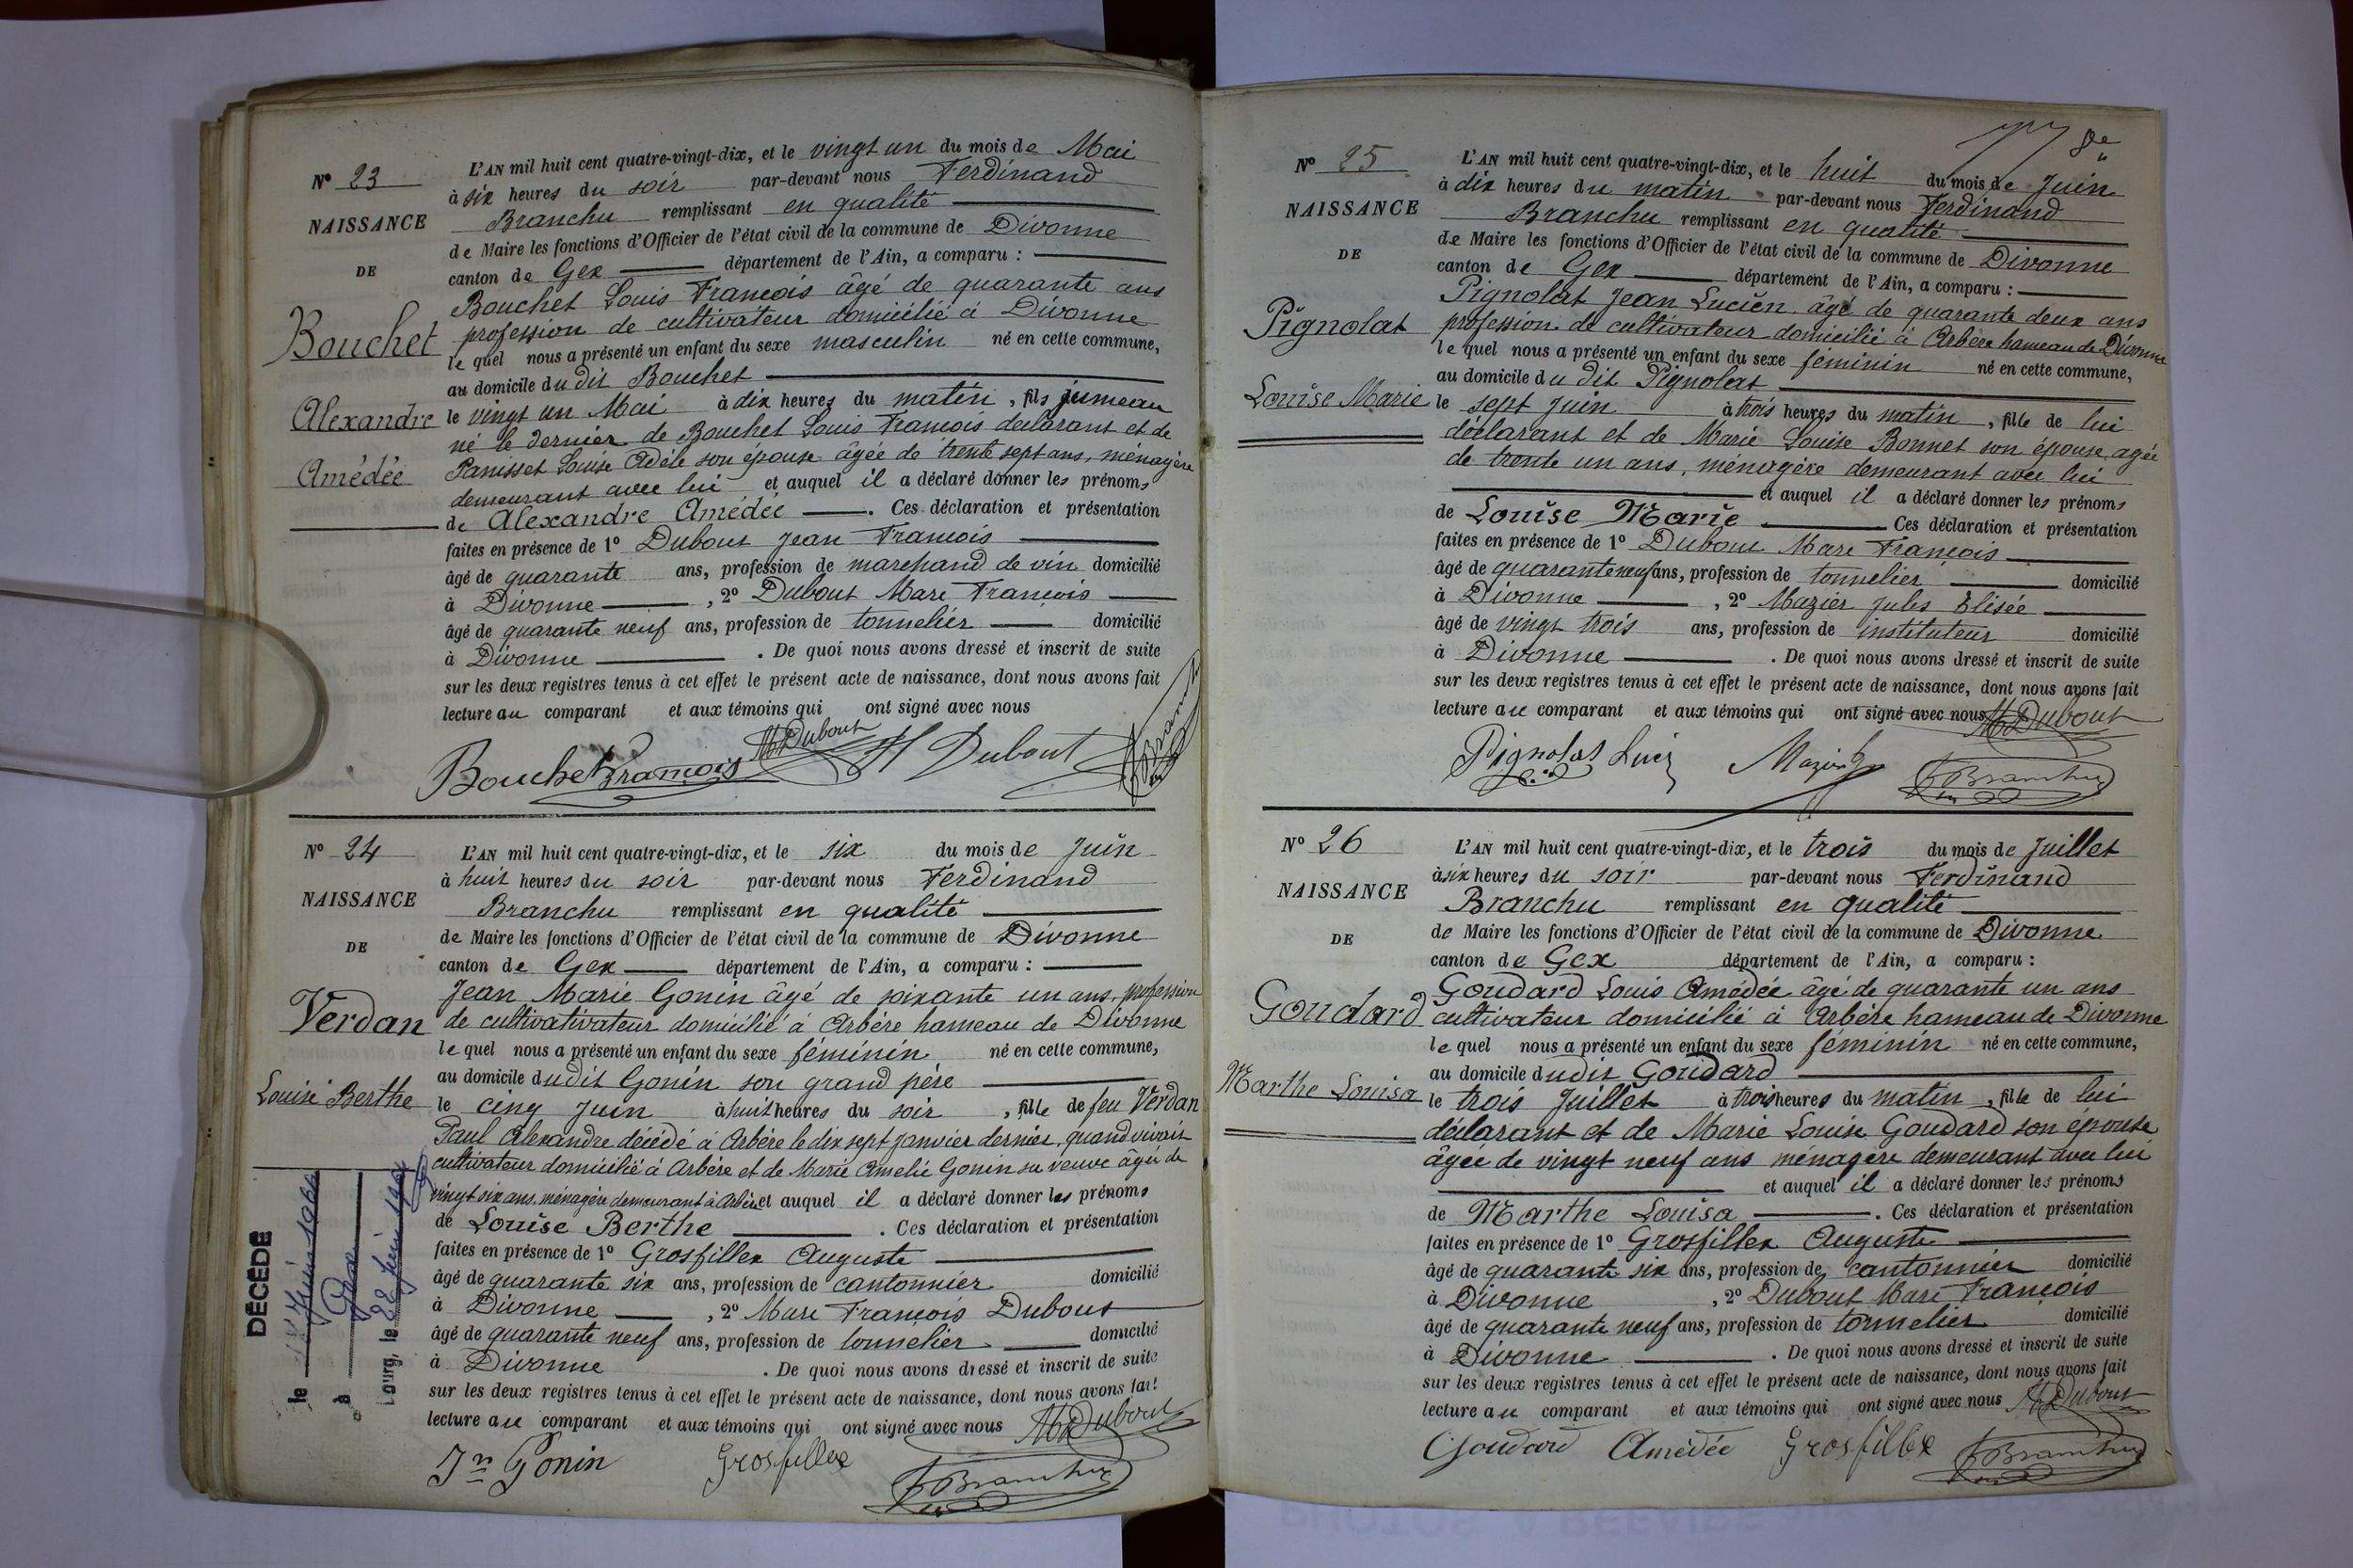 N° 23
NAISSANCE
DE
Bouchet
Alexandre
Amédée
L'AN mil huit cent quatre-vingt-dix, et le vingt un du mois de Mai
à six heures du soir par-devant nous Ferdinand
Branchu remplissant en qualité
de Maire les fonctions d'Officier de l'état civil de la commune de Divonne
canton de Gex département de l'Ain, a comparu :
Bouchet Louis François âgé de quarante ans
profession de cultivateur domicilié à Divonne
le quel nous a présenté un enfant du sexe masculin né en cette commune,
au domicile du dit Bouchet
le vingt un Mai à dix heures du matin, fils jumeau
né le dernier de Bouchet Louis François déclarant et de
Panisset Louise Adèle son épouse âgée de trente sept ans, ménagère
demeurant avec lui et auquel il a déclaré donner les prénoms
de Alexandre Amédée . Ces déclaration et présentation
faites en présence de 1° Dubout Jean François
âgé de quarante ans, profession de marchand de vin domicilié
à Divonne , 2° Dubout Marc François
âgé de quarante neuf ans, profession de tonnelier domicilié
à Divonne . De quoi nous avons dressé et inscrit de suite
sur les deux registres tenus à cet effet le présent acte de naissance, dont nous avons fait
lecture au comparant et aux témoins qui ont signé avec nous
Bouchet François M Dubout Dubout F Branchu
N° 24
NAISSANCE
DE
Verdan
Louise Berthe
DÉCÉDÉ
le
à Gex
Bourg, le 22 Juin
L'AN mil huit cent quatre-vingt-dix, et le six du mois de Juin
à huit heures du soir par-devant nous Ferdinand
Branchu remplissant en qualité
de Maire les fonctions d'Officier de l'état civil de la commune de Divonne
canton de Gex département de l'Ain, a comparu :
Jean Marie Gonin âgé de soixante un ans, profession
de cultivativateur domicilié à Arbère hameau de Divonne
le quel nous a présenté un enfant du sexe féminin né en cette commune,
au domicile dudit Gonin son grand père
le cinq Juin à huit heures du soir , fille de feu Verdan
Paul Alexandre décédé à Arbère le dix sept janvier dernier, quand vivait
cultivateur domicilié à Arbère et de Marie Amélie Gonin sa veuve âgée de
vingt six ans, ménagère demeurant à Arbère et auquel il a déclaré donner les prénoms
de Louise Berthe . Ces déclaration et présentation
faites en présence de 1° Grosfillex Auguste
âgé de quarante six ans, profession de cantonnier domicilié
à Divonne , 2° Marc François Dubout
âgé de quarante neuf ans, profession de tonnelier domicilié
à Divonne . De quoi nous avons dressé et inscrit de suite
sur les deux registres tenus à cet effet le présent acte de naissance, dont nous avons fait
lecture au comparant et aux témoins qui ont signé avec nous M Dubout
Jn Gonin Grosfillex F Branchu
N° 25
NAISSANCE
DE
Pignolat
Louise Marie
L'AN mil huit cent quatre-vingt-dix, et le huit du mois de Juin
à dix heures du matin par-devant nous Ferdinand
Branchu remplissant en qualité
de Maire les fonctions d'Officier de l'état civil de la commune de Divonne
canton de Gex département de l'Ain, a comparu :
Pignolat Jean Lucien âgé de quarante deux ans
profession de cultivateur domicilié à Arbère hameau de Divonne
le quel nous a présenté un enfant du sexe féminin né en cette commune,
au domicile du dit Pignolat
le sept juin à trois heures du matin , fille de lui
déclarant et de Marie Louise Bonnet son épouse, agée
de trente un ans, ménagère demeurant avec lui
et auquel il a déclaré donner les prénoms
de Louise Marie Ces déclaration et présentation
faites en présence de 1° Dubout Marc François
âgé de quarante neuf ans, profession de tonnelier domicilié
à Divonne , 2° Mazier Jules Elisée
âgé de vingt trois ans, profession de instituteur domicilié
à Divonne . De quoi nous avons dressé et inscrit de suite
sur les deux registres tenus à cet effet le présent acte de naissance, dont nous avons fait
lecture au comparant et aux témoins qui ont signé avec nous M Dubout
Pignolat Mazier F Branchu
N° 26
NAISSANCE
DE
Goudard
Marthe Louisa
L'AN mil huit cent quatre-vingt-dix, et le trois du mois de Juillet
à six heures du soir par-devant nous Ferdinand
Branchu remplissant en qualité
de Maire les fonctions d'Officier de l'état civil de la commune de Divonne
canton de Gex département de l'Ain, a comparu :
Goudard Louis Amédée âgé de quarante un ans
cultivateur domicilié à Arbère hameau de Divonne
le quel nous a présenté un enfant du sexe féminin né en cette commune,
au domicile dudit Goudard
le trois Juillet à trois heures du matin , fille de lui
déclarant et de Marie Louise Goudard son épouse
âgée de vingt neuf ans ménagère demeurant avec lui
et auquel il a déclaré donner les prénoms
de Marthe Louisa . Ces déclaration et présentation
faites en présence de 1° Grosfillex Auguste
âgé de quarante six ans, profession de cantonnier domicilié
à Divonne , 2° Dubout Marc François
âgé de quarante neuf ans, profession de tonnelier domicilié
à Divonne . De quoi nous avons dressé et inscrit de suite
sur les deux registres tenus à cet effet le présent acte de naissance, dont nous avons fait
lecture au comparant et aux témoins qui ont signé avec nous M Dubout
Goudard Amédée Grosfillex F Branchu